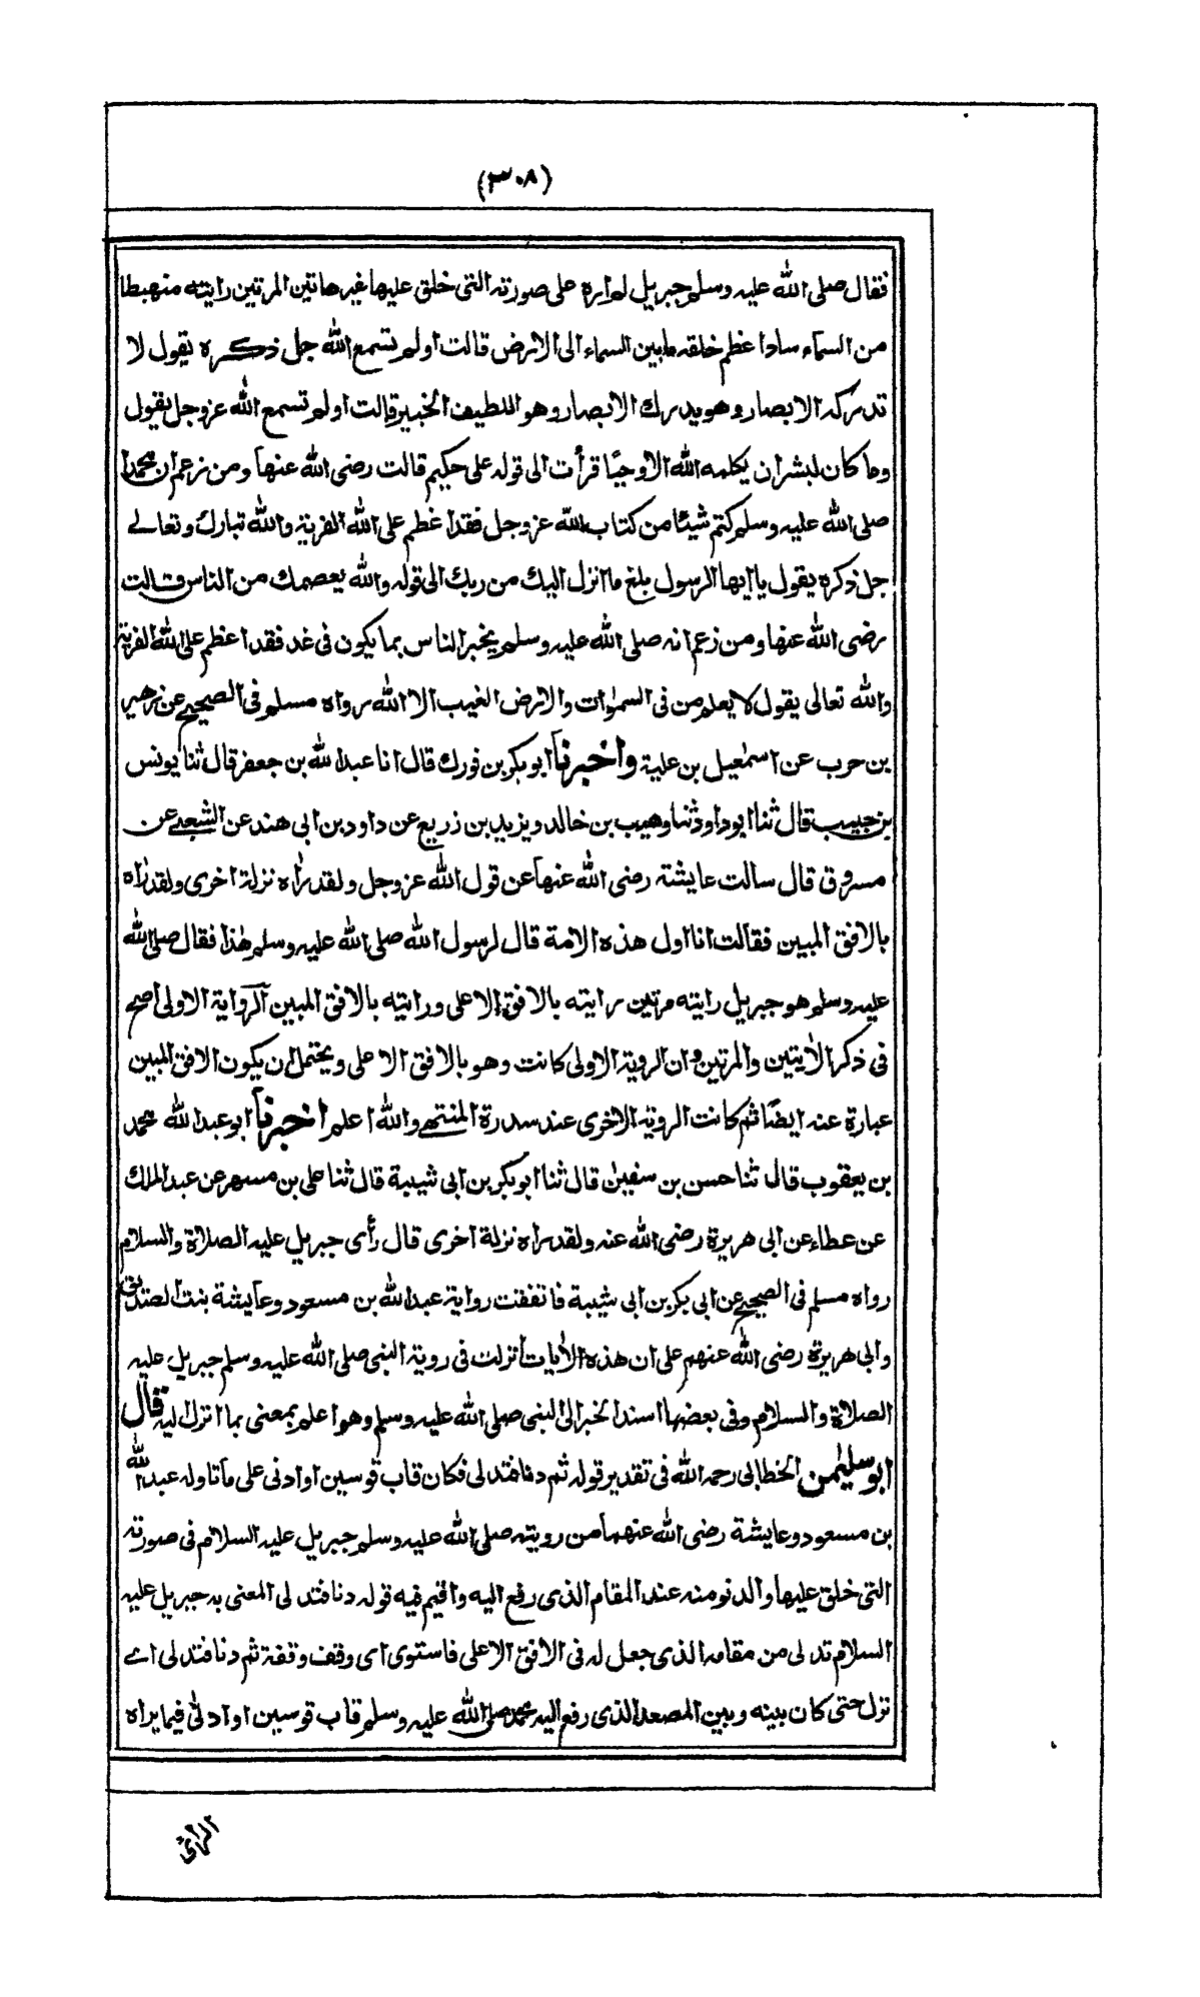 (٣٠٨)
فقال صلى الله عليه وسلم جبريل لم اره على صورته التي خلق عليها غير هاتين المرتين رايته منهبطا
من السماء سادا عظم خلقه مابين السماء الى الارض قالت اولم تسمع الله جل ذكره يقول لا
تدركه الابصار وهو يدرك الابصار وهو اللطيف الخبير قالت اولم تسمع الله عز وجل يقول
وما كان لبشر ان يكلمه الله الا وحيًا قرأت الى قوله على حكيم قالت رضى الله عنها ومن زعم ان محمدا
صلى الله عليه وسلم كتم شيئًا من كتاب الله عز وجل فقد اعظم على الله الفرية والله تبارك وتعالے
جل ذكره يقول يا ايها الرسول بلغ ما انزل اليك من ربك الى قوله والله يعصمك من الناس قالت
رضى الله عنها ومن زعم انه صلى الله عليه وسلم يخبر الناس بما يكون فى غد فقد اعظم على الله الفرية
والله تعالى يقول لا يعلم من فى السمٰوات والارض الغيب الا الله رواه مسلم فى الصحيح عن زهير
بن حرب عن اسمٰعيل بن علية واخبرنا ابو بكر بن فورك قال انا عبد الله بن جعفر قال ثنا يونس
بن حبيب قال ثنا ابو داود ثنا وهيب بن خالد ويزيد بن زريع عن داود بن ابى هند عن الشعبے عن
مسروق قال سالت عايشة رضى الله عنها عن قول الله عز وجل ولقد رٰاه نزلة اخرى ولقد رٰاه
بالافق المبين فقالت انا اول هذه الامة قال لرسول الله صلى الله عليه وسلم هٰذا فقال صلى الله
عليه وسلم هو جبريل رايته مرتين رايته بالافق الاعلى ورايته بالافق المبين الرواية الاولى اصح
فى ذكر الاٰيتين والمرتين وان الروية الاولى كانت وهو بالافق الاعلى ويحتمل ان يكون الافق المبين
عبارة عنه ايضًا ثم كانت الروية الاخرى عند سدرة المنتهے والله اعلم اخبرنا ابو عبد الله محمد
بن يعقوب قال ثنا حسن بن سفيٰن قال ثنا ابو بكر بن ابى شيبة قال ثنا على بن مسهر عن عبد الملك
عن عطاء عن ابى هريرة رضى الله عنه ولقد راه نزلة اخرى قال رأى جبريل عليه الصلاة والسلام
رواه مسلم فى الصحيح عن ابى بكر بن ابى شيبة فاتفقت رواية عبد الله بن مسعود وعايشة بنت الصديق
وابى هريرة رضى الله عنهم على ان هذه الاٰيات انزلت فى روية النبى صلى الله عليه وسلم جبريل عليه
الصلاة والسلام وفى بعضها اسند الخبر الى النبى صلى الله عليه وسلم وهو اعلم بمعنى بما انزل اليه قال
ابو سليمٰن الخطابى رحمه الله فى تقدير قوله ثم دنا فتدلى فكان قاب قوسين او ادنى على ما تاوله عبد الله
بن مسعود وعايشة رضى الله عنهما من رويته صلى الله عليه وسلم جبريل عليه السلام فى صورته
التى خلق عليها والدنو منه عند المقام الذى رفع اليه واقيم فيه قوله دنا فتدلى المعنى به جبريل عليه
السلام تدلى من مقامه الذى جعل له فى الافق الاعلى فاستوى اى وقف وقفة ثم دنا فتدلى اے
نزل حتى كان بينه وبين المصعد الذى رفع اليه محمد صلى الله عليه وسلم قاب قوسين او ادنٰى فيما يراه
الرائى